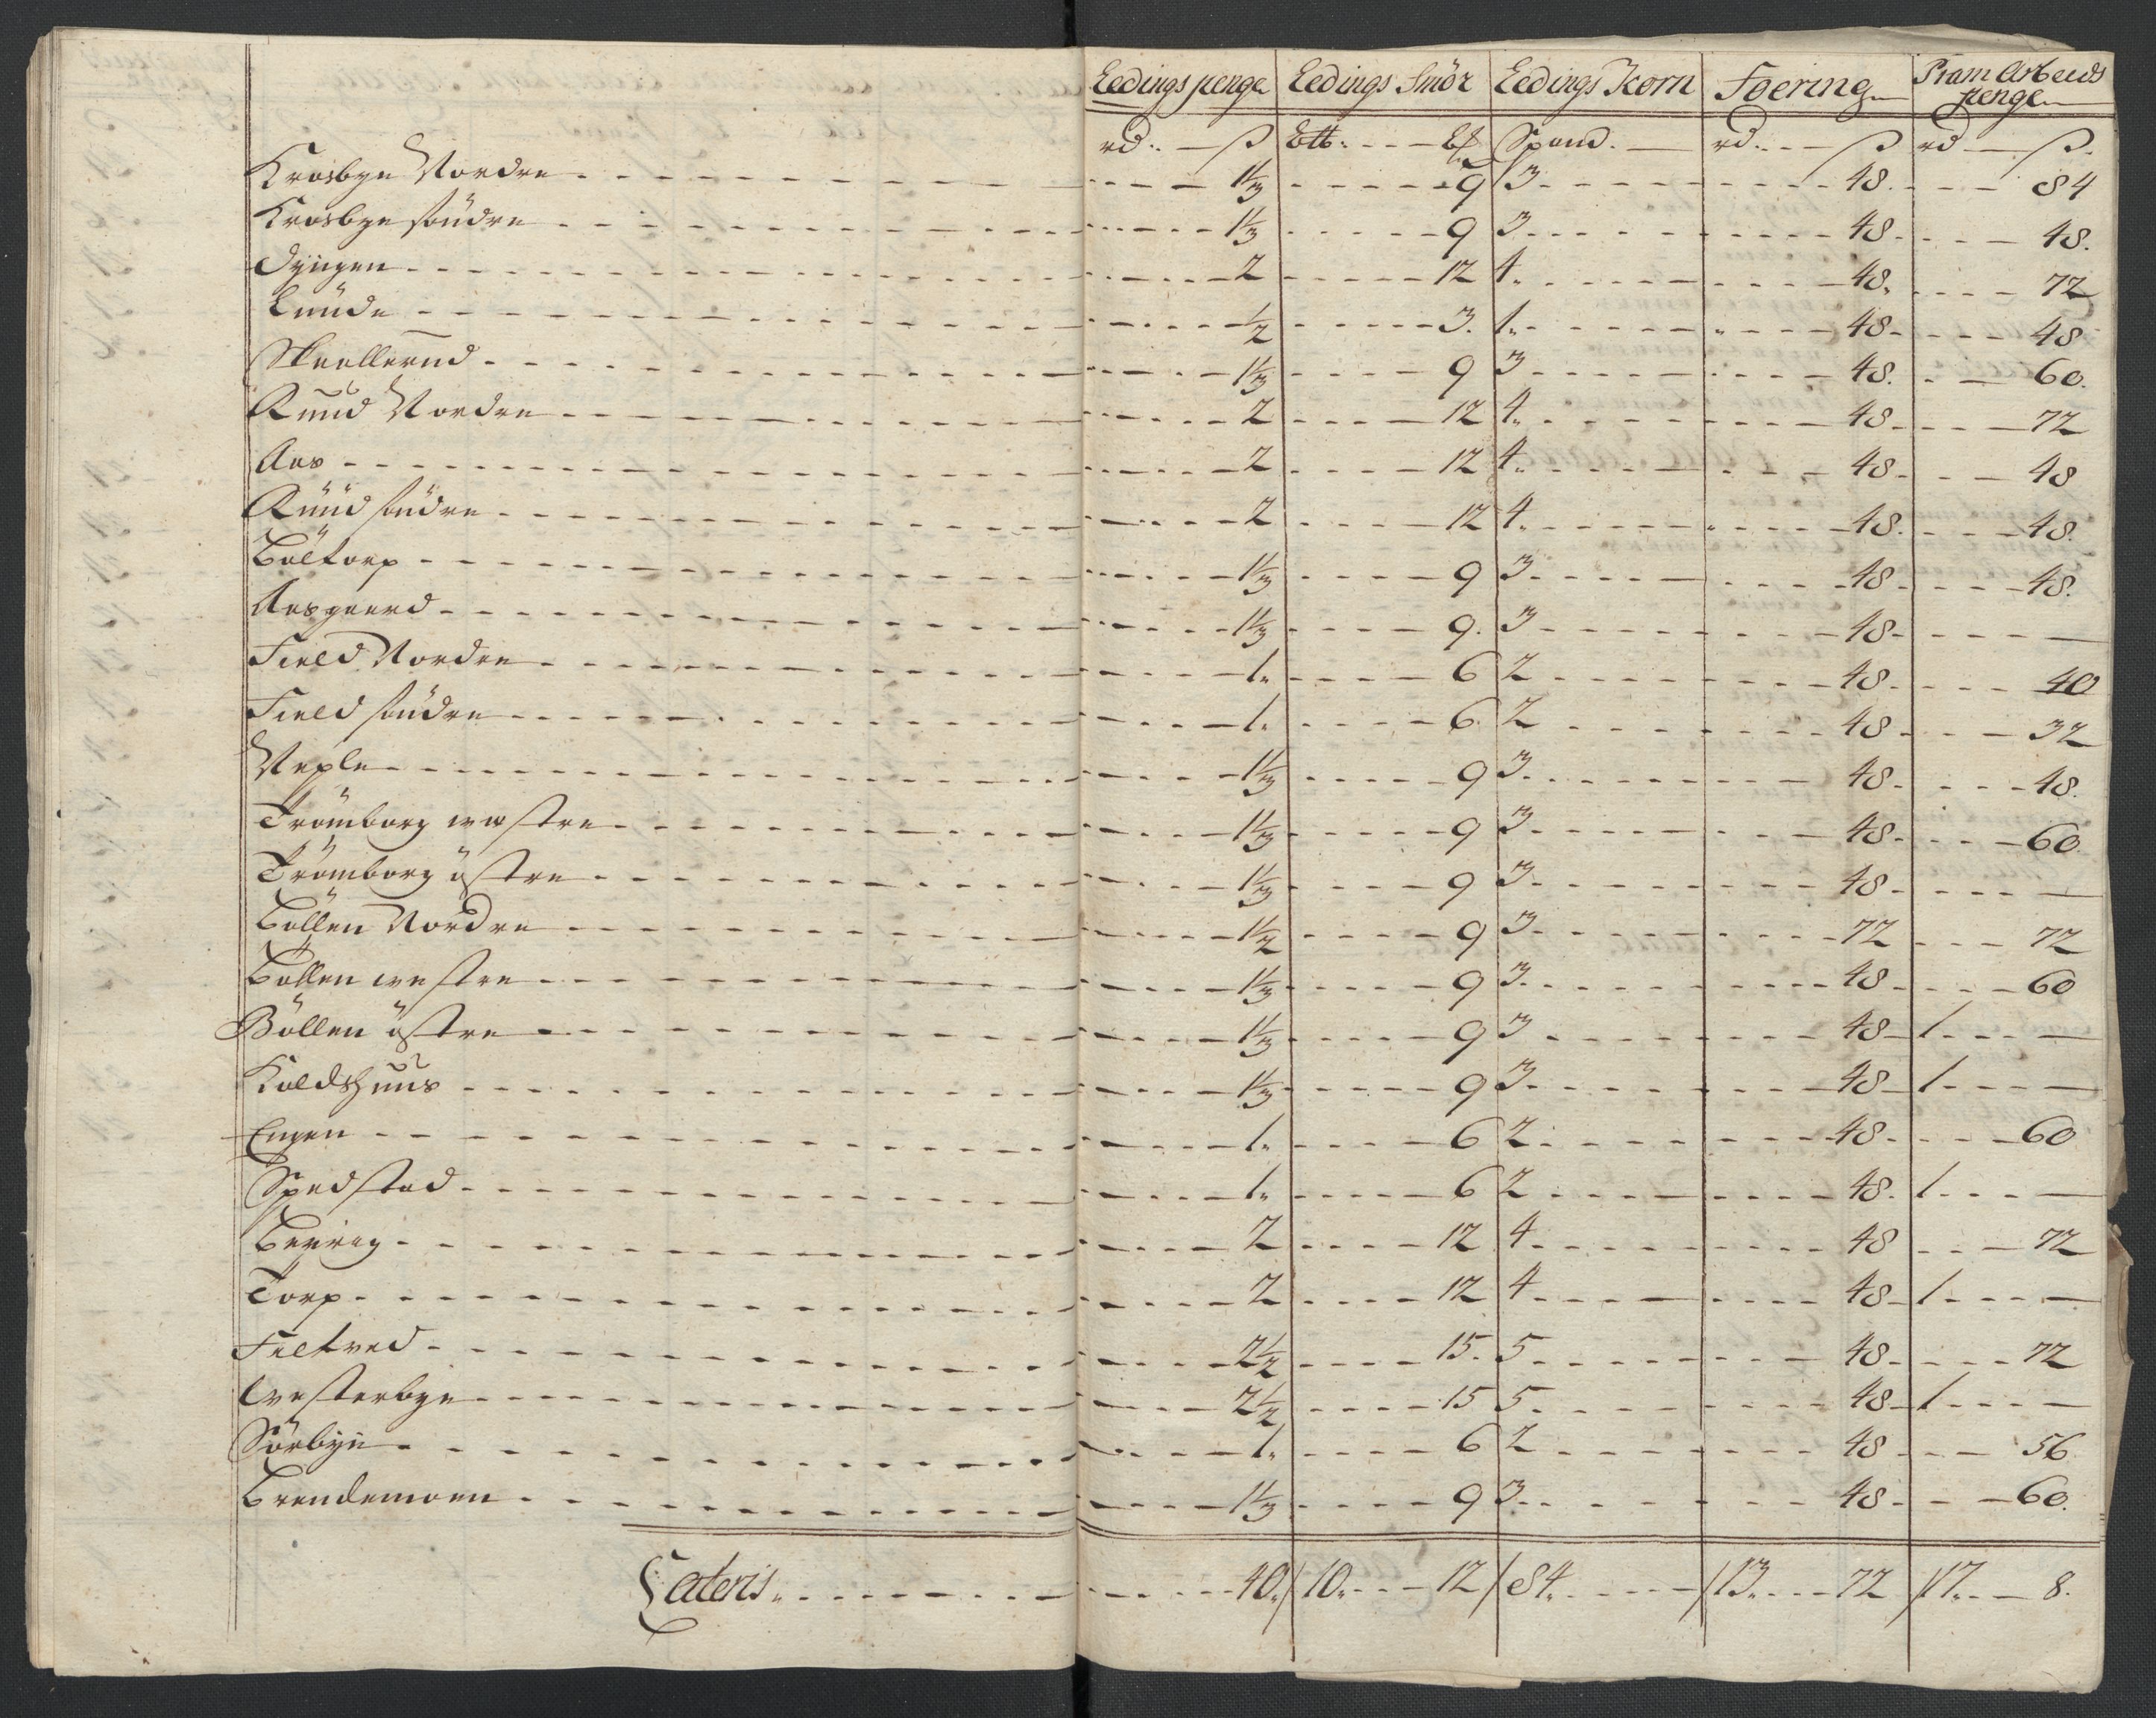 Leedings penge Leedings Smör Leedings Korn Foering Pram Arbeids
penge
rd ß rd ß rd ß
Krosbye Nordre 1⅓ 9 3 48 84
Krosbye söndre 1⅓ 9 3 48 48
Dyngen 2 12 4 48 72
Lunde ½ 3 1 48 48
Skullerud 1⅓ 9 3 48 60
Ruud Nordre 2 12 4 48 72
Aas 2 12 4 48 48
Ruud söndre 2 12 4 48 48
Böltorp 1⅓ 9 3 48 48
Aasgaard 1⅓ 9 3 48
Field Nordre 1 6 2 48 40
Field söndre 1 6 2 48 32
1⅓ 9 3 48 48
Trömborg westre 1⅓ 9 3 48 60
Trömborg östre 1⅓ 9 3 48
Böllen Nordre 1½ 9 3 72 72
Böllen westre 1⅓ 9 3 48 60
Böllen östre 1⅓ 9 3 48 1
Koldshuus 1⅓ 9 3 48 1
Engen 1 6 2 48 60
Spedstad 1 6 2 48 1
2 12 4 48 72
Torp 2 12 4 48 1
Feltved 2½ 15 5 48 72
Westerbye 2½ 15 5 48 1
Sörbye 1 6 2 48 56
Brendemoen 1⅓ 9 3 48 60
Lateris 40 10 12 84 13 72 17 8